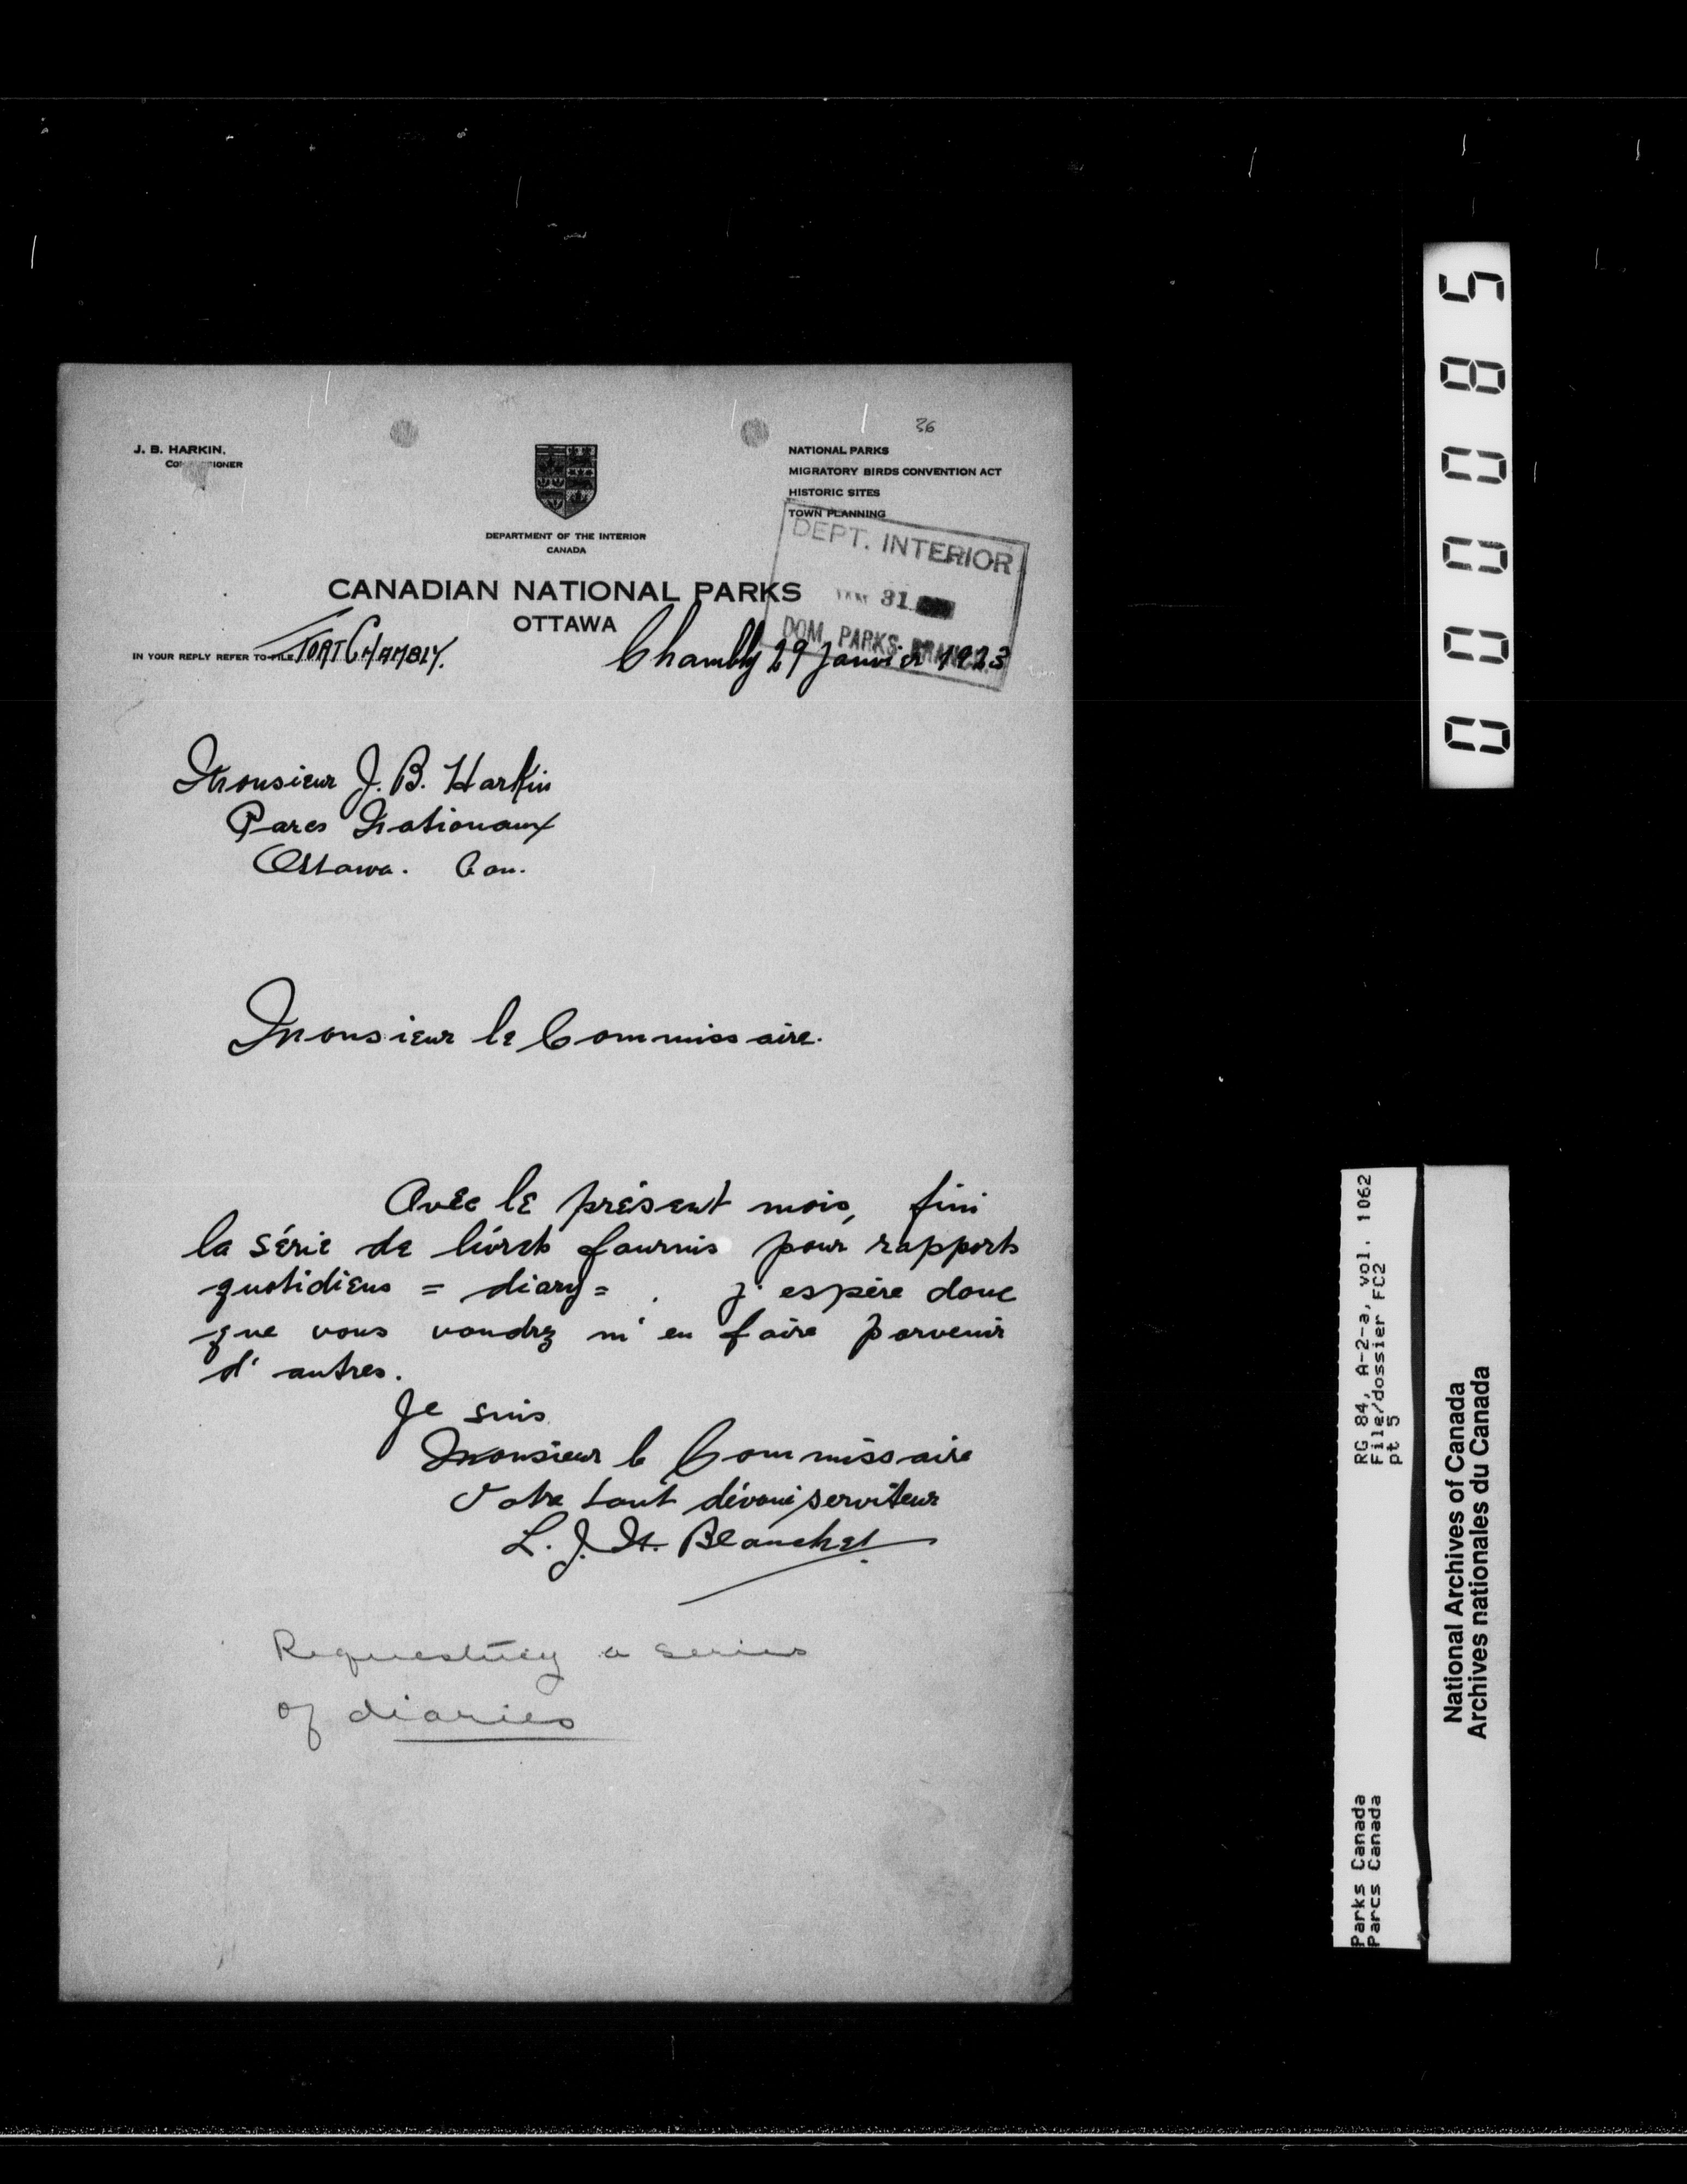 36
J. B. HARKIN,
NATIONAL PARKS
MIGRATORY BIRDS CONVENTION ACT
HISTORIC SITES
TOWN PLANNING
DEPARTMENT OF THE INTERIOR
CANADA
CANADIAN NATIONAL PARKS
OTTAWA
DEPT. INTERIOR
JAN 31
DOM. PARKS BRANCH
IN YOUR REPLY REFER TO FILE FORT CHAMBLY.
Chambly 29 Janvier 1923
Monsieur J. B. Harkin
Parcs Nationaux
Ottawa. Can.
Monsieur le Commissaire.
Avec le présent mois, fini
la série de livrets fournis pour rapports
quotidiens = diary = . j'espère donc
que vous voudrez m'en faire parvenir
d'autres.
Je suis
Monsieur le Commissaire
Votre tout dévoué serviteur
L. J. N. Blanchet
Requesting a series
of diaries
000085
RG 84, A-2-a, vol. 1062
File/dossier FC2
pt 5
Parks Canada
Parcs Canada
National Archives of Canada
Archives nationales du Canada